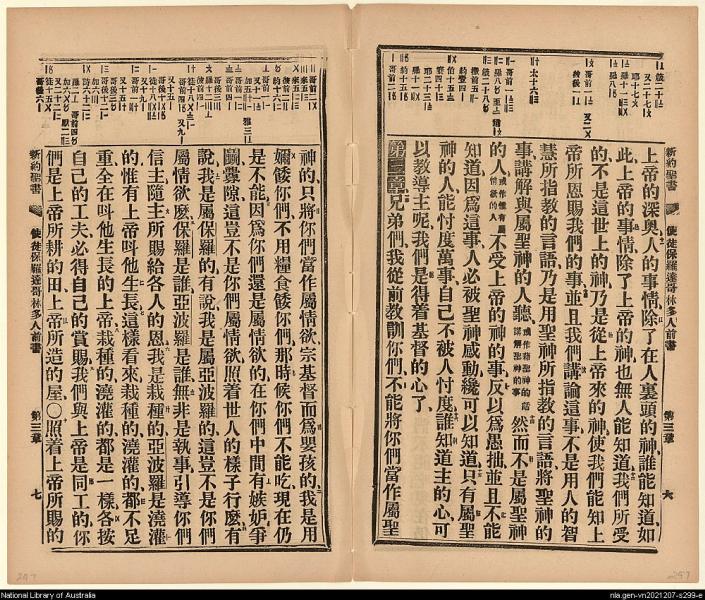 上帝的深奧人的事情除了在人裏頭的神誰能知道如
此上帝的事情除了上帝的神也無人能知道我們所受
的不是這世上的神乃是從上帝來的神使我們能知上
帝所恩賜我們的事並且我們講論這事不是用人的智
慧所指教的言語乃是用聖神所指教的言語將聖神的
事講解與屬聖神的人聽 然而不是屬聖神
的人 不受上帝的神的事反以爲愚拙並且不能
知道因爲這事人必被聖神感動纔可以知道只有屬聖
神的人能忖度萬事自己不被人忖度誰知道主的心可
以教導主呢我們是得着基督的心了
第三章兄弟們我從前教訓你們不能將你們當作屬聖
新約聖書
使徒保羅達哥林多人前書
第三章
六
神的只將你們當作屬情欲宗基督而爲嬰孩的我是用
嬭餧你們不用糧食餧你們那時候你們不能吃現在仍
是不能因爲你們還是屬情欲的在你們中間有嫉妒爭
鬭釁隙這豈不是你們屬情欲照着世人的樣子行麽有
說我是屬保羅的有說我是屬亞波羅的這豈不是你們
屬情欲麽保羅是誰亞波羅是誰無非是執事引導你們
信主隨主所賜給各人的恩我是栽種的亞波羅是澆灌
的惟有上帝呌他生長這樣看來栽種的澆灌的都不足
重全在呌他生長的上帝栽種的澆灌的都是一樣各按
自己的工夫必得自己的賞賜我們與上帝是同工的你
們是上帝所耕的田上帝所造的屋〇照着上帝所賜的
新約聖書
使徒保羅達哥林多人前書
第三章
七
National Library of Australia
nla.gen-vn2021207-s299-e